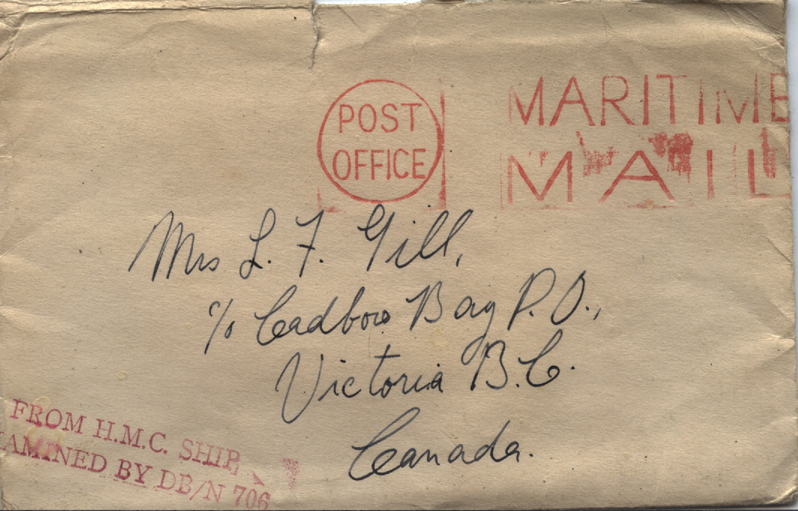 POST
OFFICE
MARITIME
MAIL
Mrs L. F. Gill,
c/o Cadboro Bay P.O.,
Victoria B.C.
Canada.
FROM H.M.C. SHIP
AMINED BY DB/N 706